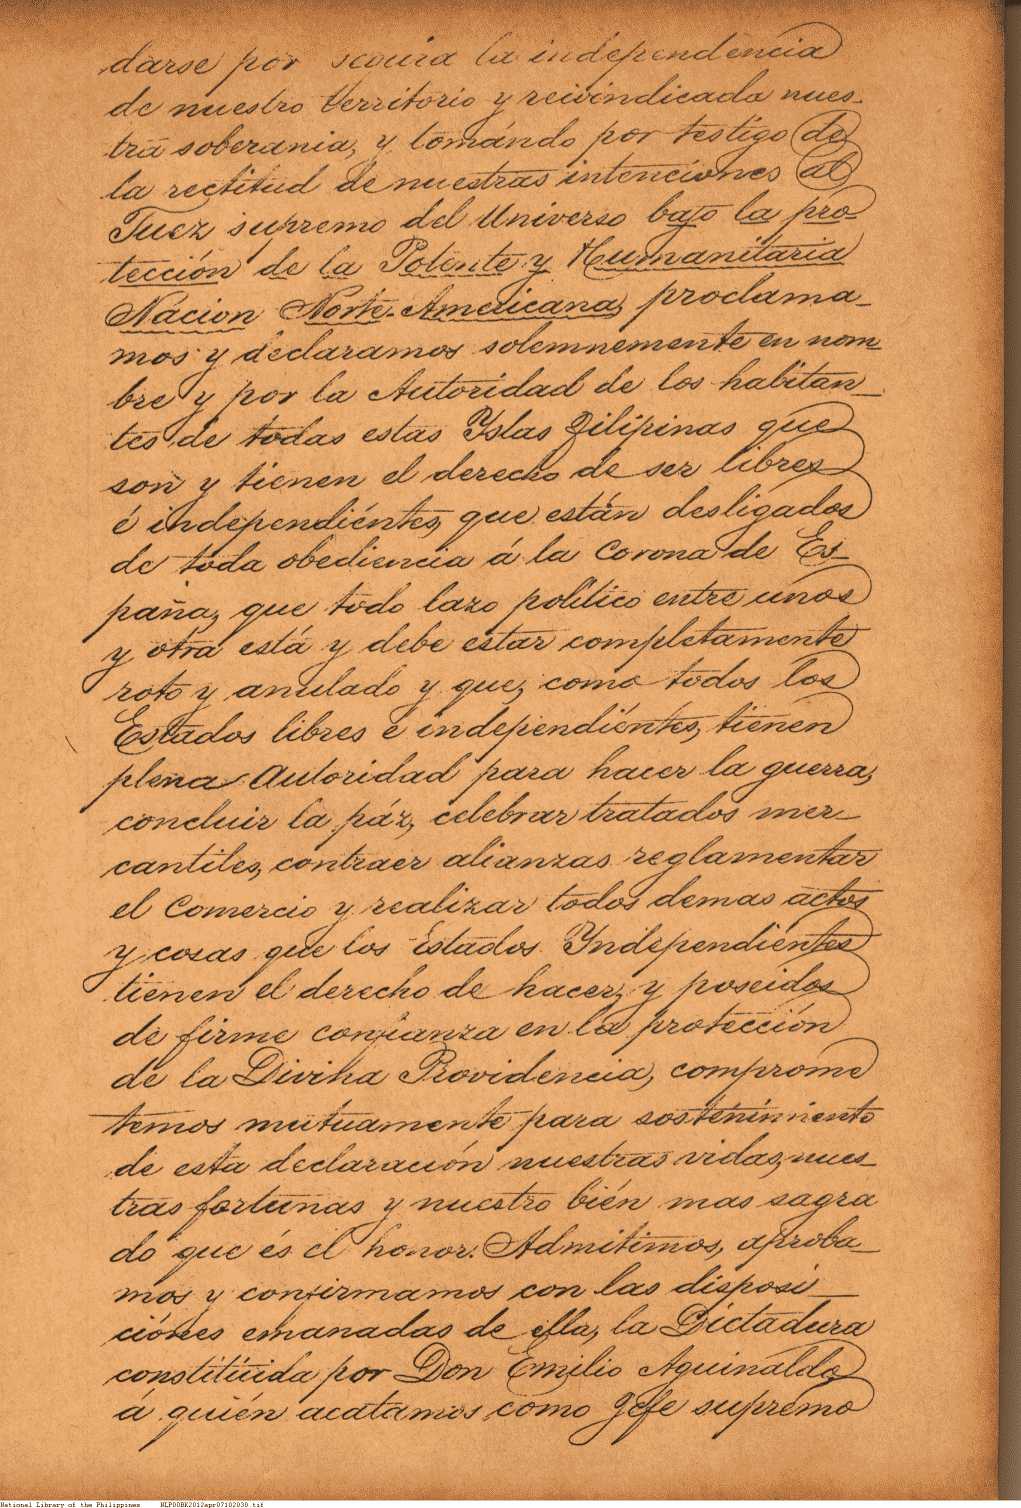 darse por seguira la independencia
de nuestro territorio y reivindicada nues-
tra soberania, y tomándo por testigo de
la rectitud de nuestras intenciones al
Juez supremo del Universo bajo la pro-
tección de la Potente y Humanitaria
Nacion Norte-Americana, proclama-
mos y declaramos solemnemente en nom-
bre y por la Autoridad de los habitan-
tes de todas estas Yslas Filipinas que
son y tienen el derecho de ser libres
é independiéntes, que están desligados
de toda obediencia á la Corona de Es-
paña, que todo lazo político entre unos
y otra está y debe estar completamente
roto y anulado y que, como todos los
Estados libres e independiéntes, tienen
plena Autoridad para hacer la guerra,
concluir la páz, celebrar tratados mer-
cantiles, contraer alianzas reglamentar
el Comercio y realizar todos demas actos
y cosas que los Estados Yndependientes
tienen el derecho de hacer, y poseidos
de firme confianza en la protección
de la Divina Providencia, comprome
temos mútuamente para sostenimiento
de esta declaración nuestras vidas, nues-
tras fortunas y nuestro bién mas sagra
do que és el honor. Admitimos, aproba-
mos y confirmamos con las disposi-
ciónes emanadas de ella, la Dictadura
constitúida por Don Emilio Aguinaldo
á quién acatamos como Jefe supremo
National Library of the Philippines NLPOOBK2012apr07102030.tif